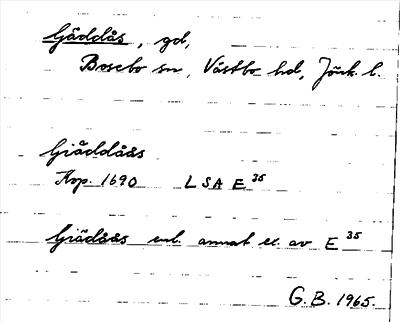 Gäddås, gd,
Bosebo sn, Västbo hd, Jönk. l.
Giäddåås
Kop. 1690 LSA E 35
Giädåås enl. annat ex. av E 35
G.B. 1965.